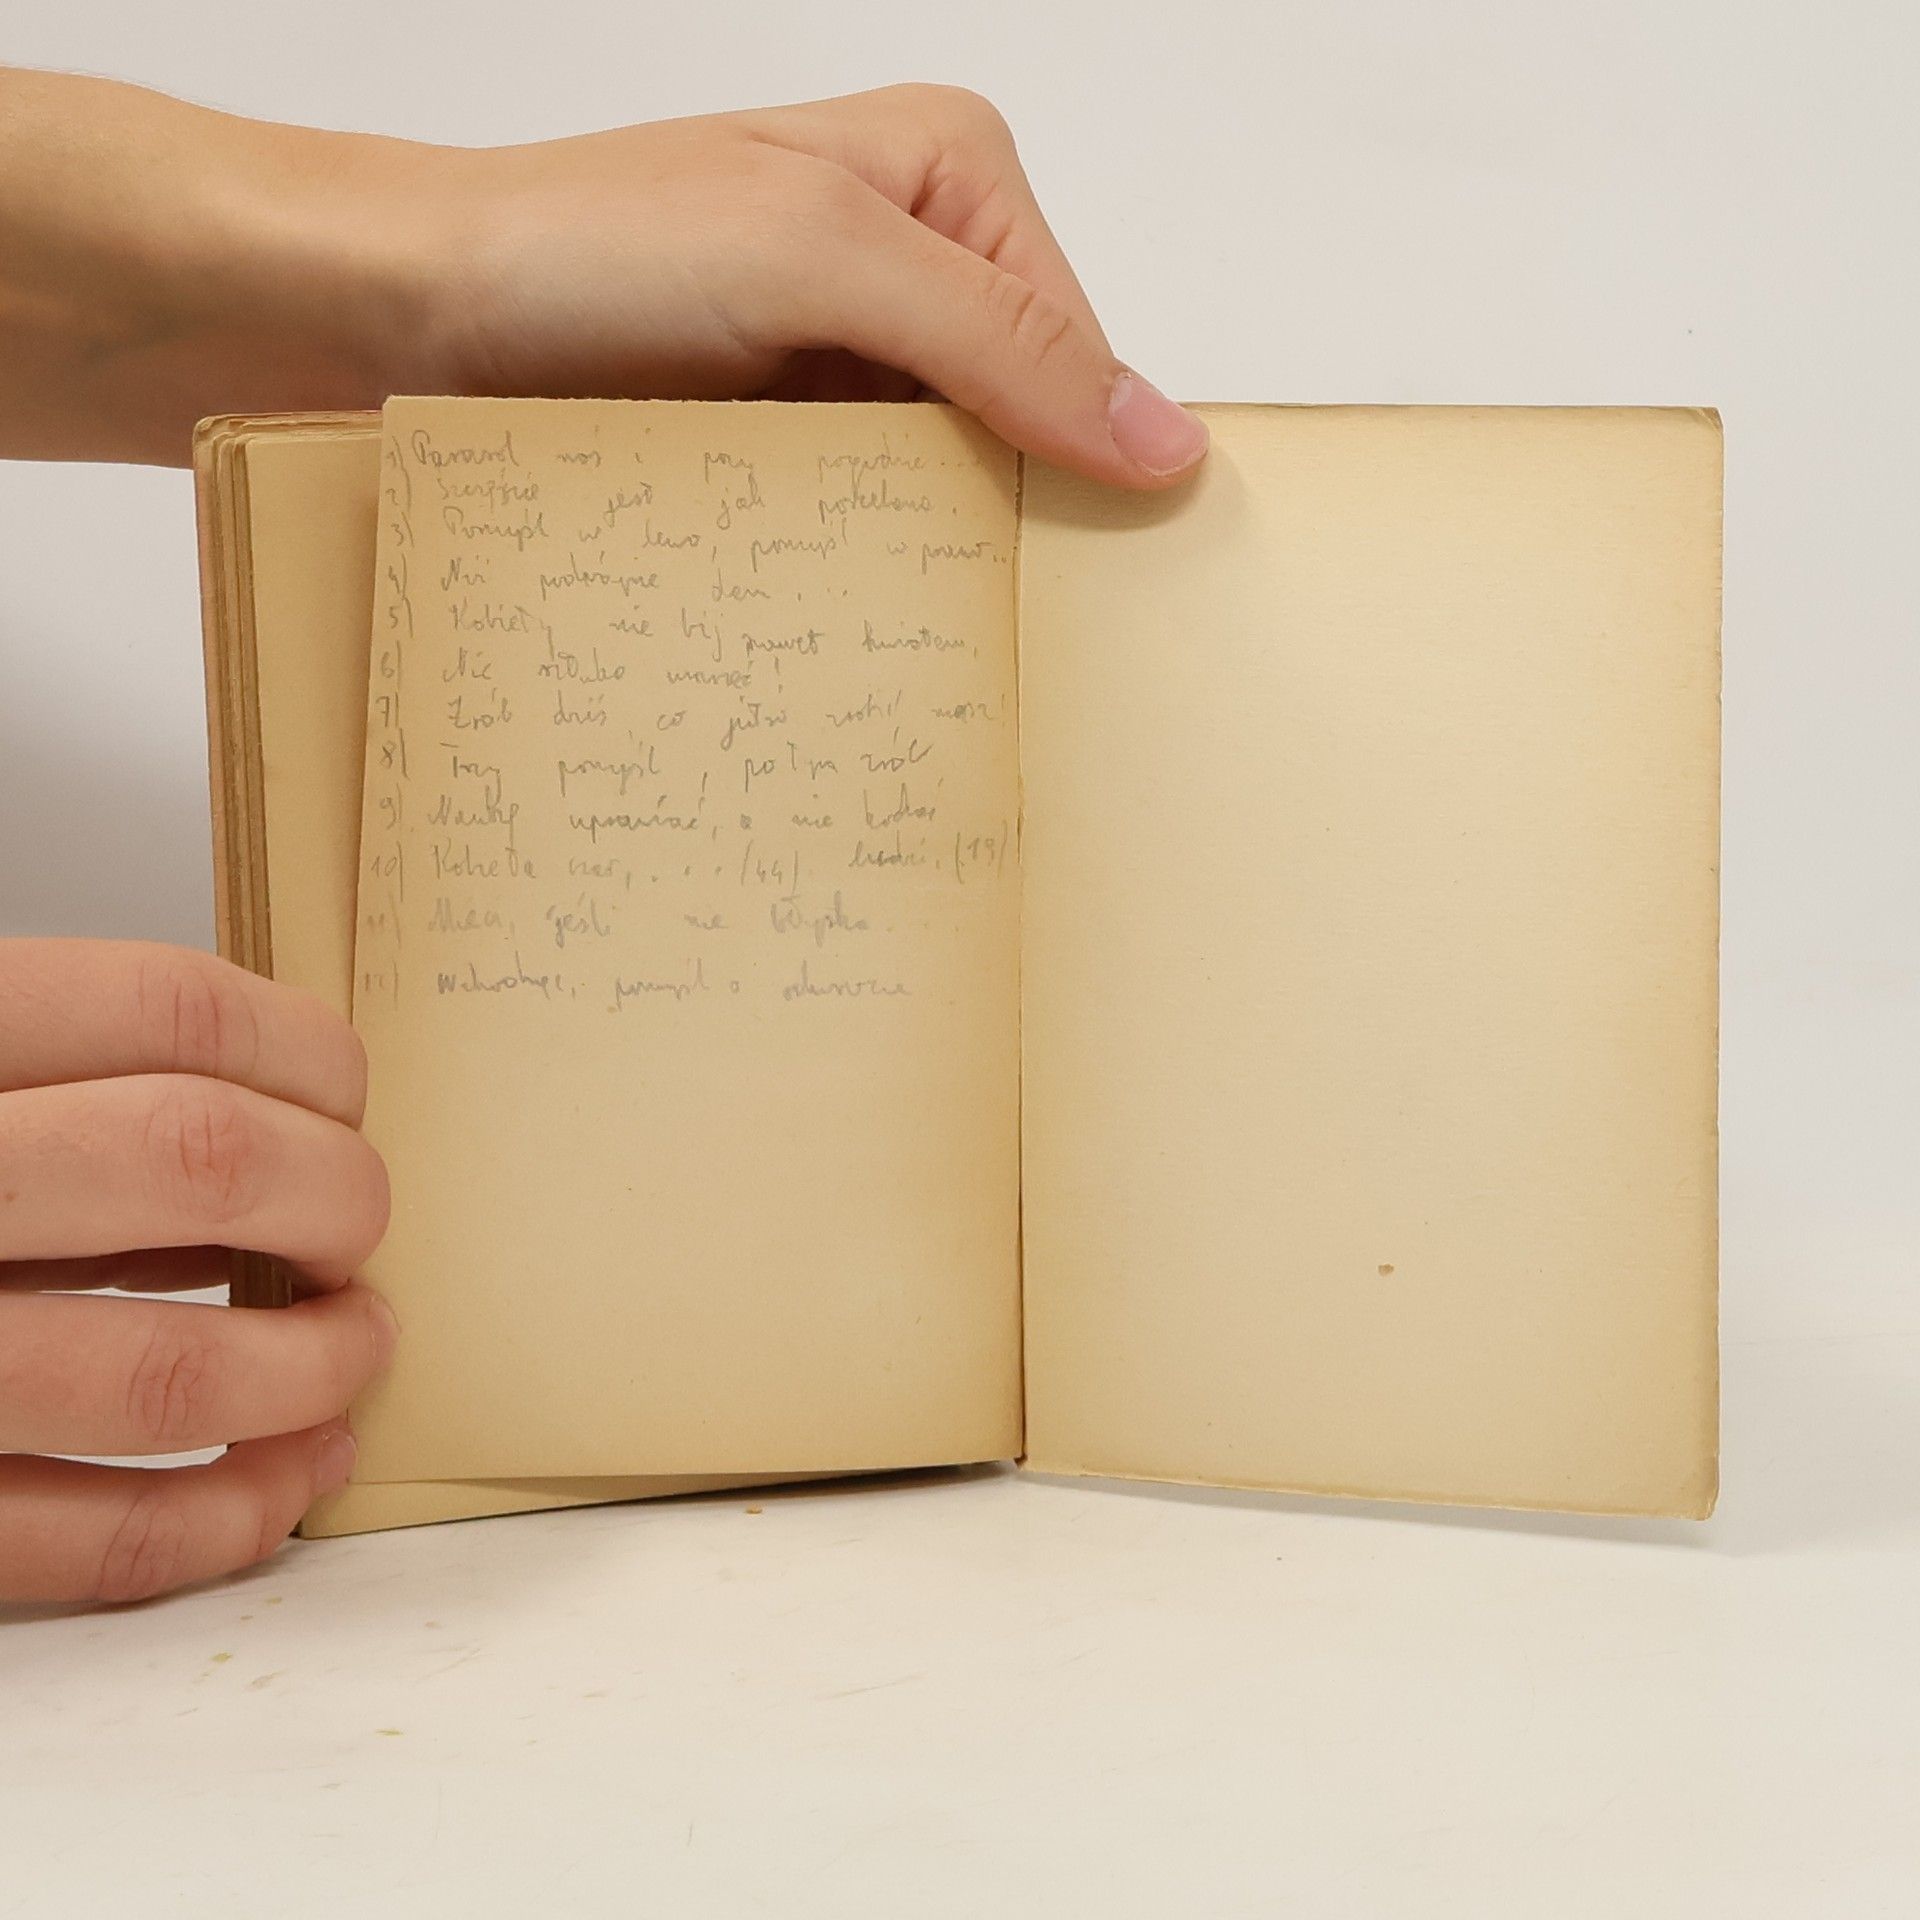 1) Parasol noś i przy pogodzie...
2) Szczęście jest jak porcelana.
3) Pomyśl w lewo, pomyśl w prawo..
4) Nić podwójnie den...
5) Kobiety nie bij nawet kwiatem,
6) Nie sztuka umrzeć!
7) Zrób dziś, co jutro zrobić masz!
8) Trzy pomyśl, potym zrób
9) Naukę uprawiać, a nie kochać
10) Kobieta . . . (44) ludzi. (19)
11) Miecz, jeśli nie błyska...
12) Wchodząc, pomyśl o